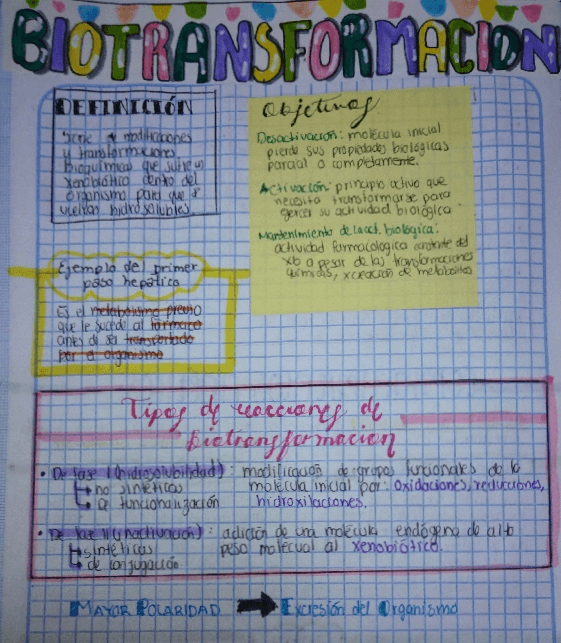 BIOTRANSFORMACION
DEFINICIÓN
Serie + modificaciones
y transformaciones
bioquímicas que sufre un
xenobiótico dentro del
organismo para que +
vuelvan hidrosolubles.
Objetivos
Desactivación: molécula inicial
pierde sus propiedades biológicas
parcial o completamente.
Activación: principio activo que
necesita transformarse para
ejercer su actividad biológica.
Mantenimiento de la act. biológica:
actividad farmacologica constante del
xb a pesar de las transformaciones
químicas, xcreación de metabolitos
Ejemplo del primer
paso hepático
Es el metabolismo previo
que le sucede al fármaco
antes de ser transportado
por el organismo
Tipos de reacciones de
Biotransformacion
• De fase I (hidrosolubilidad): modificación de grupos funcionales de la
no sintéticas molécula inicial por: oxidaciones, reducciones,
de funcionalización hidroxilaciones.
• De fase II (inactivación): adición de una molécula endógena de alto
sintéticas peso molecual al xenobiótico.
de conjugación
MAYOR POLARIDAD Excresión del Organismo